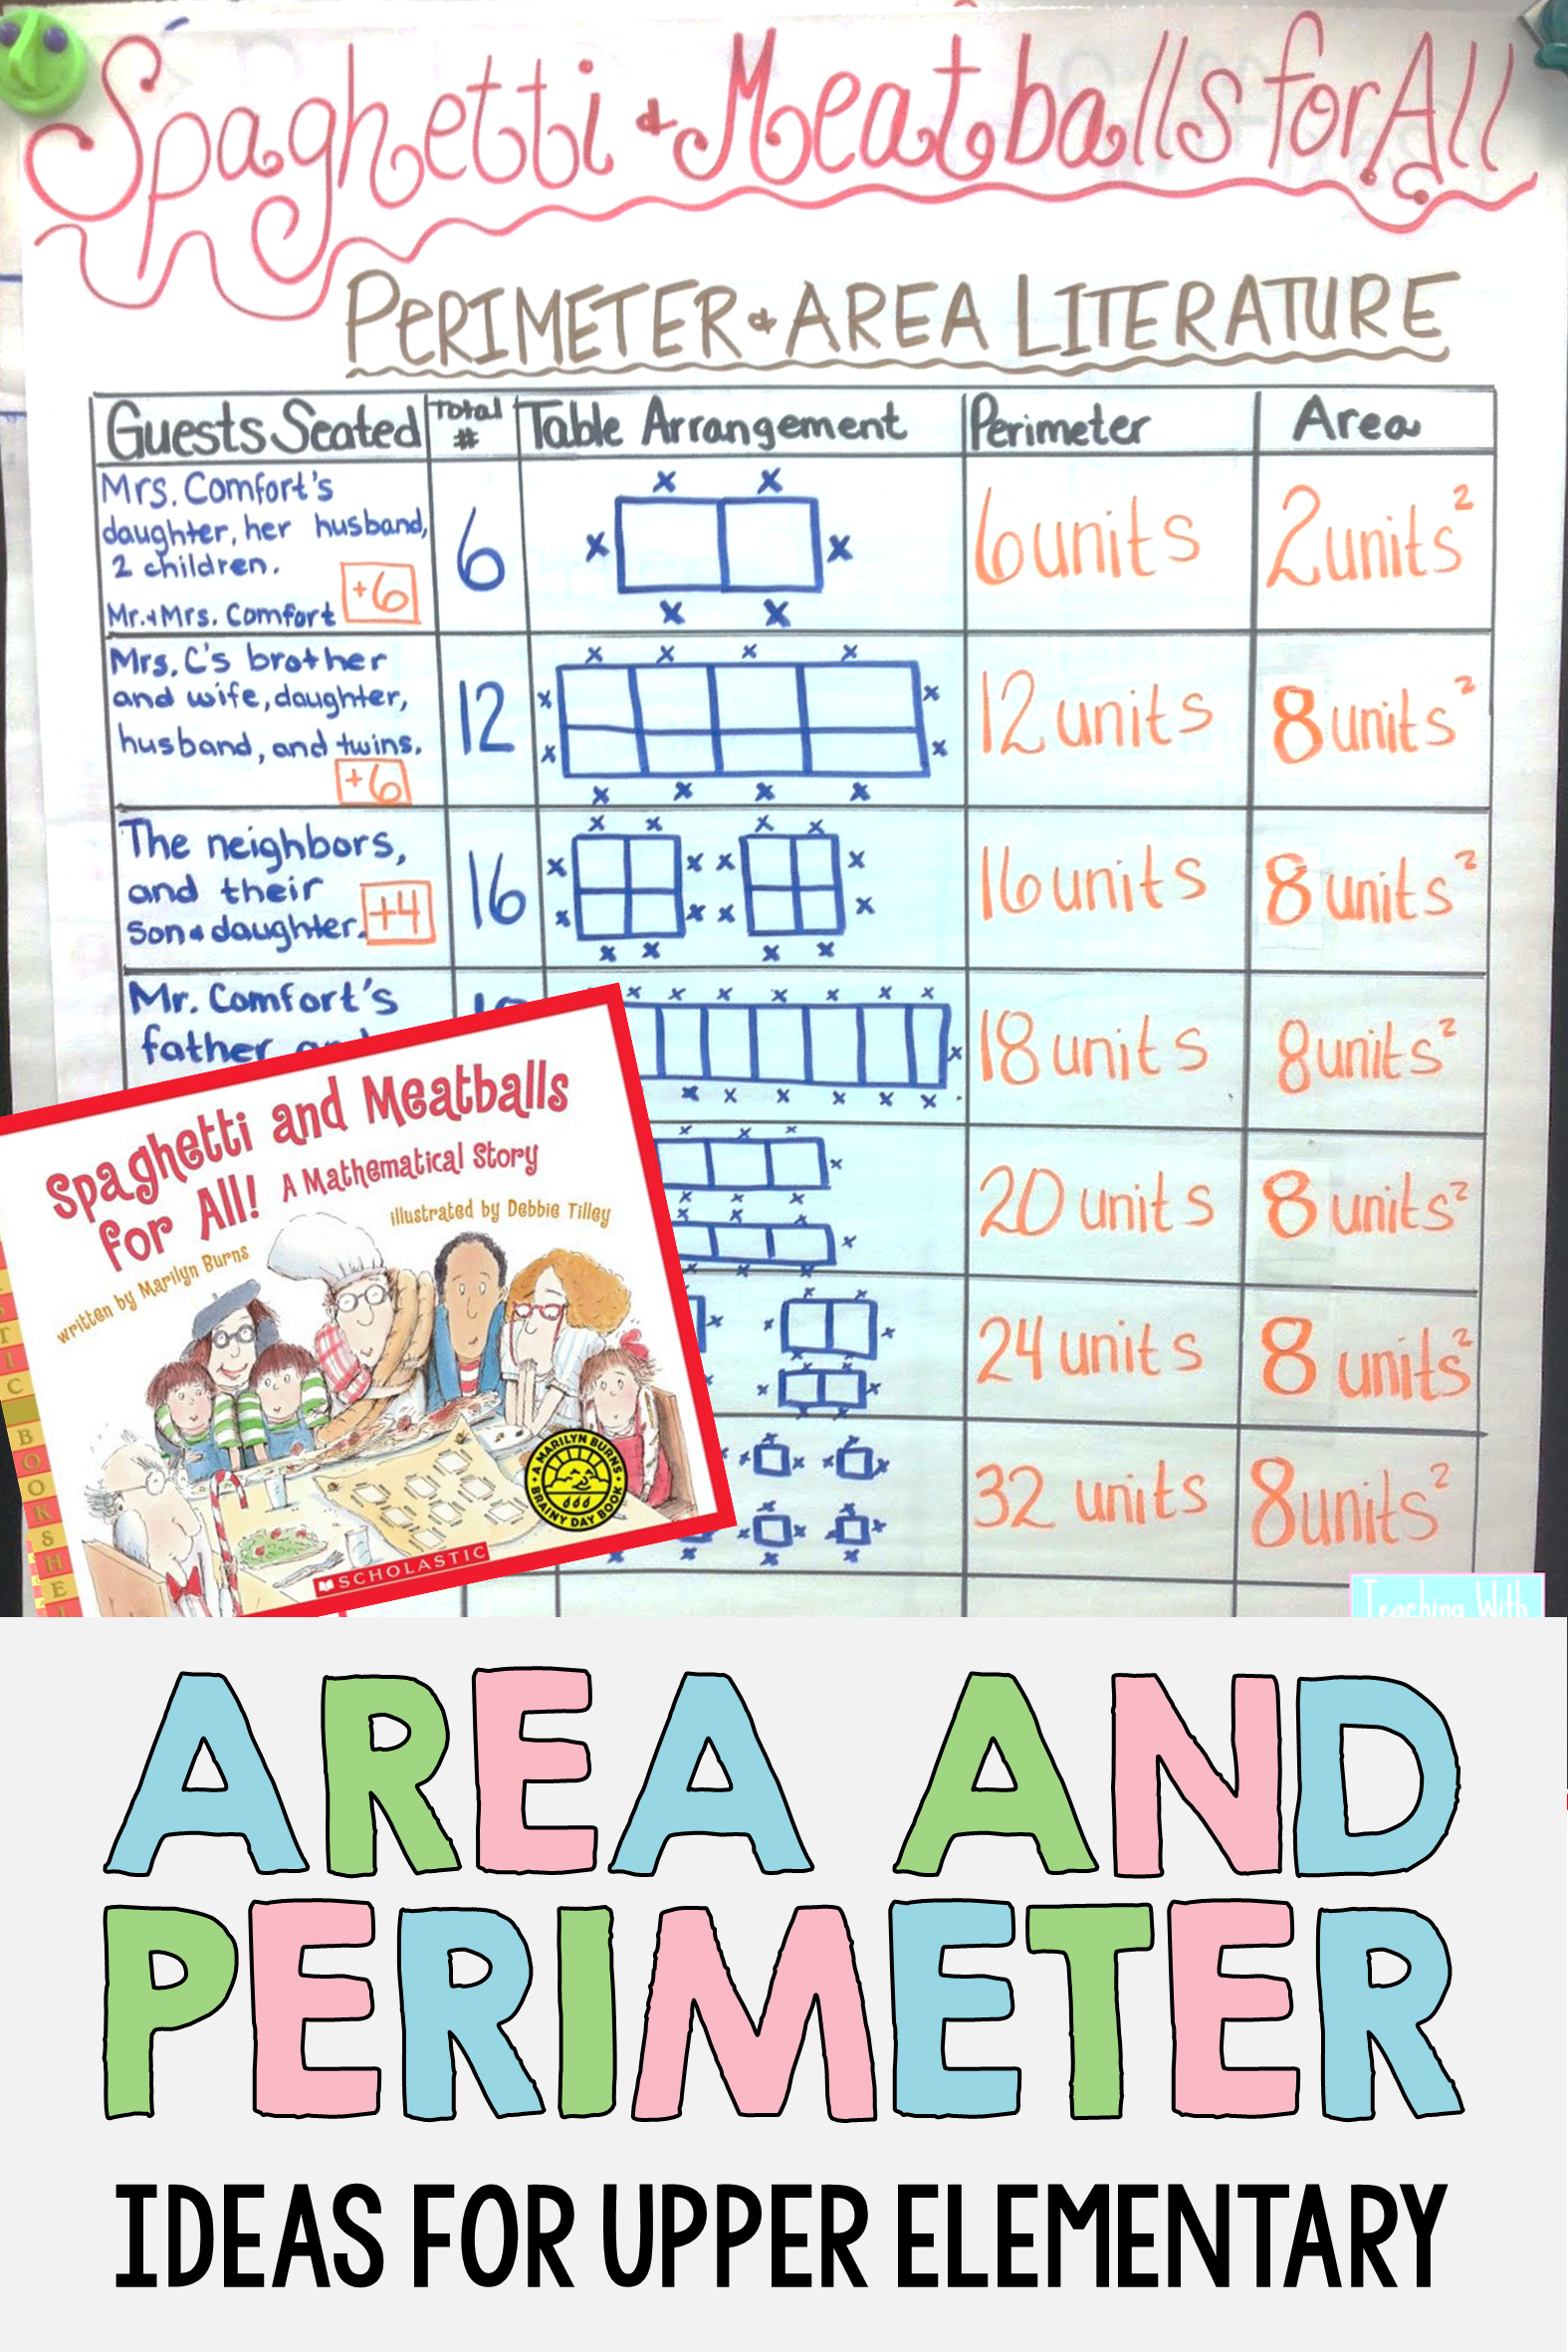 Spaghetti & Meatballs for All
PERIMETER & AREA LITERATURE
Guests Seated Total # Table Arrangement Perimeter Area
Mrs. Comfort's
daughter, her husband,
2 children.
Mr. & Mrs. Comfort +6
6
6 units
2 units²
Mrs. C's brother
and wife, daughter,
husband, and twins.
+6
12
12 units
8 units²
The neighbors,
and their
son & daughter. +4
16
16 units
8 units²
Mr. Comfort's
father
18 units
8 units²
20 units
8 units²
24 units
8 units²
32 units
8 units²
Spaghetti and Meatballs
for All! A Mathematical Story
written by Marilyn Burns
illustrated by Debbie Tilley
A MARILYN BURNS
BRAINY DAY BOOK
SCHOLASTIC
Teaching With
AREA AND
PERIMETER
IDEAS FOR UPPER ELEMENTARY